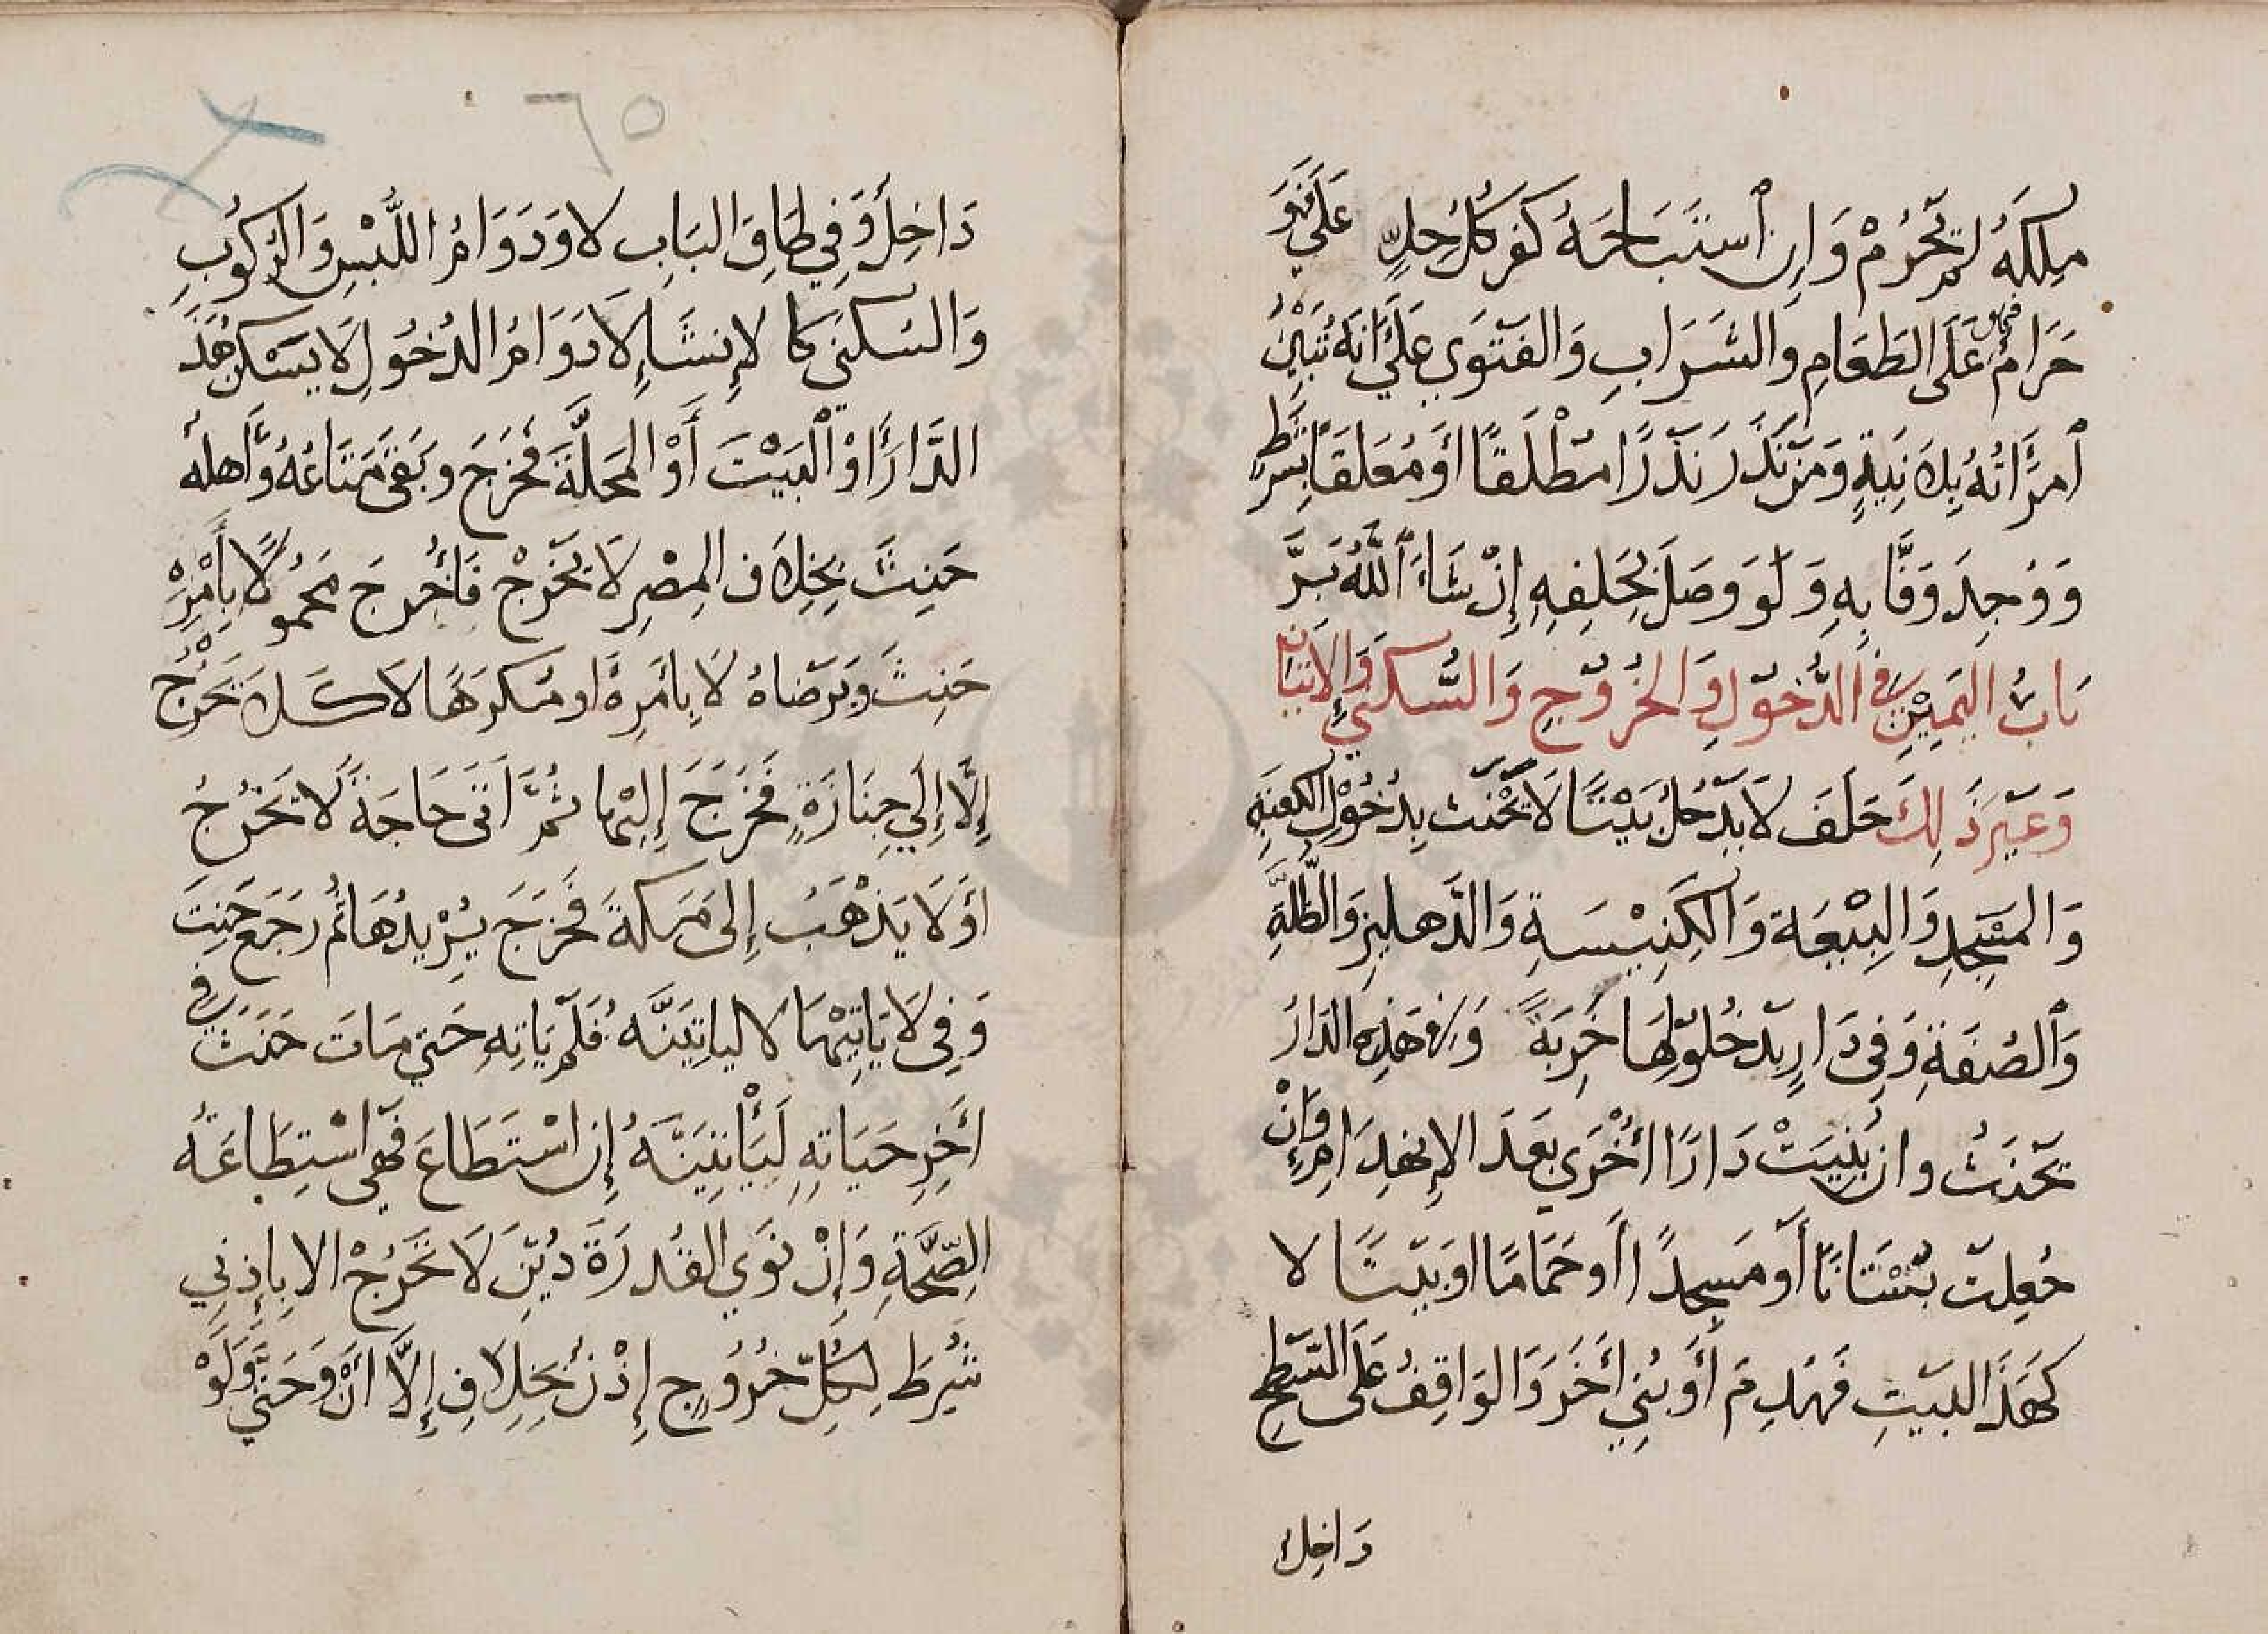 مِلكَهُ لم يَحْرُمْ وَاِن ٱستَبَاحَهُ كفر كُل حِلٍّ عَلَيَّ فَهُوَ
حَرَامٌ فهو على عَلَى الطَعَامِ وَالشَرَابِ وَالفَتوَى عَلَى أَنَهُ تَبِيْنُ
ٱمرَأتُهُ بِلاَ نِيَةٍ وَمَن نَذَرَ نَذرًا مُطْلَقًا اَو مُعَلقًا بِشَرطٍ
وَوُجِدَ وَفَّا بِهِ وَلَو وَصَلَ بِحَلِفِهِ إِنْ شَاءَ ٱللَّهُ بَرَّ
بَابُ اليَمِيْنِ فِي الدُّخوْلِ وَالخُرُوْجِ وَالسُّكنَى وَالإتيَانِ
وَغَيْرِ ذَلِكَ حَلَفَ لاَ يَدْخُلُ بَيْتًا لاَ يَحْنَث بِدُخُوْلِ الكعبَةِ
وَالمَسْجِدِ وَالبِيْعَة وَالكَنِيْسَةِ وَالدَهلِيزِ وَالظُّلَّةِ
وَٱلصُفَةِ وَفِي دَارٍ بِدُخُلوْلِهَا خَرِبَةً وَفي هَذِهِ الدَارُ
يَحْنَثُ وان بُنِيَتْ دَارًا أُخْرَى بَعَدَ الاِنهِدَامِ وَإِنْ
جُعِلت بُسْتَانًا أَو مَسجِدًا أَو حَمَامًا او بَيْتًا لا
كَهَذَا البَيتِ فَهُدِمَ أَو بُنِيَ أَخَرَ وَالوَاقِفُ عَلَى السَطحِ
دَاخِلٌ
٦٥
دَاخِلٌ وَفِي طَاقِ البَابِ لا وَدَوَامُ اللَّبْسِ وَالرُكُوْبِ
وَالسُكنَى كَا لإِنشَاءِ لَا دَوَامُ الدُخُوْلِ لَا يَسْكُن هَذَ
الدَّارَ اَوْ ٱلبَيْتَ أَوْ المَحَلَّةَ فَخَرَجَ وبَقَى مَتَاعُهُ وَأَهلهُ
حَنِثَ بِخِلاَف المِصْرِ لاَ يَخْرُجْ فَأُخرِجَ مَحمُولًا بِأَمْرِهِ
حَنِثَ وَبِرَضاهُ لَا بِأَمرِهُ او مُكرَهًا لاَ كَـ لاَ يَخْرُجُ
إِلَّا إِلَى جِنَازَةٍ فَخَرَجَ إِلَيْهَا ثُمَّ اَتَى حَاجَةً لاَ يَخْرُجُ
أَو لَا يَذْهَبُ إِلَى مَكةَ فَخَرَجَ يُرِيدُهَا ثُم رَجَعَ حَنِثَ
وَفِي لَا يَاتِيهَا لا لياتِيَنَّه فَلَم يَاتِهِ حَتى مَاتَ حَنَثَ فِي
أَخِرِ حَيَاتِهِ لَيَأتِيَنَّهُ إِن اسْتَطَاعَ فَهِى اسْتِطَاعَةُ
الصِّحَّةِ وَإِنْ نَوَى القُدرَةَ دُيِّنَ لَا تَخْرُجْ الا بِاِذنِي
شُرِطَ لِكُلِّ خُرُوْجٍ إِذْنٌ بِخِلَافِ إِلَّا اَنْ وَحَتَّى وَلَوْ